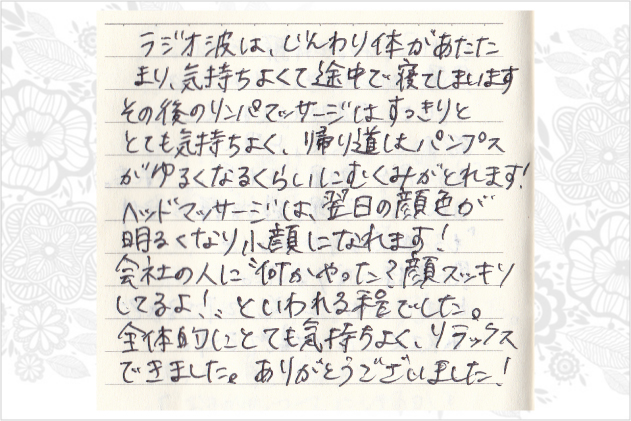 ラジオ波は、じんわり体があたた
まり、気持ちよくて途中で寝てしまいます
その後のリンパマッサージはすっきりと
とても気持ちよく、帰り道はパンプス
がゆるくなるくらいにむくみがとれます!
ヘッドマッサージは、翌日の顔色が
明るくなり小顔になれます!
会社の人に"何かやった?顔スッキリ
してるよ!"といわれる程でした。
全体的にとても気持ちよく、リラックス
できました。ありがとうございました!